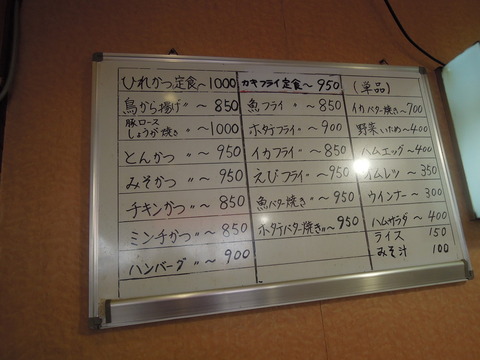 ひれかつ定食〜1000
鳥から揚げ〃〜850
豚ロース
しょうが焼き〃〜1000
とんかつ〃〜950
みそかつ〃〜950
チキンかつ〃〜850
ミンチかつ〃〜850
ハンバーグ〃〜900
カキフライ定食〜950
魚フライ〃〜850
ホタテフライ〃〜900
イカフライ〃〜850
えびフライ〃〜950
魚バター焼き〃〜950
ホタテバター焼き〃〜950
(単品)
イカバター焼き〜700
野菜いため〜400
ハムエッグ〜400
オムレツ〜350
ウインナー〜300
ハムサラダ〜400
ライス 150
みそ汁 100